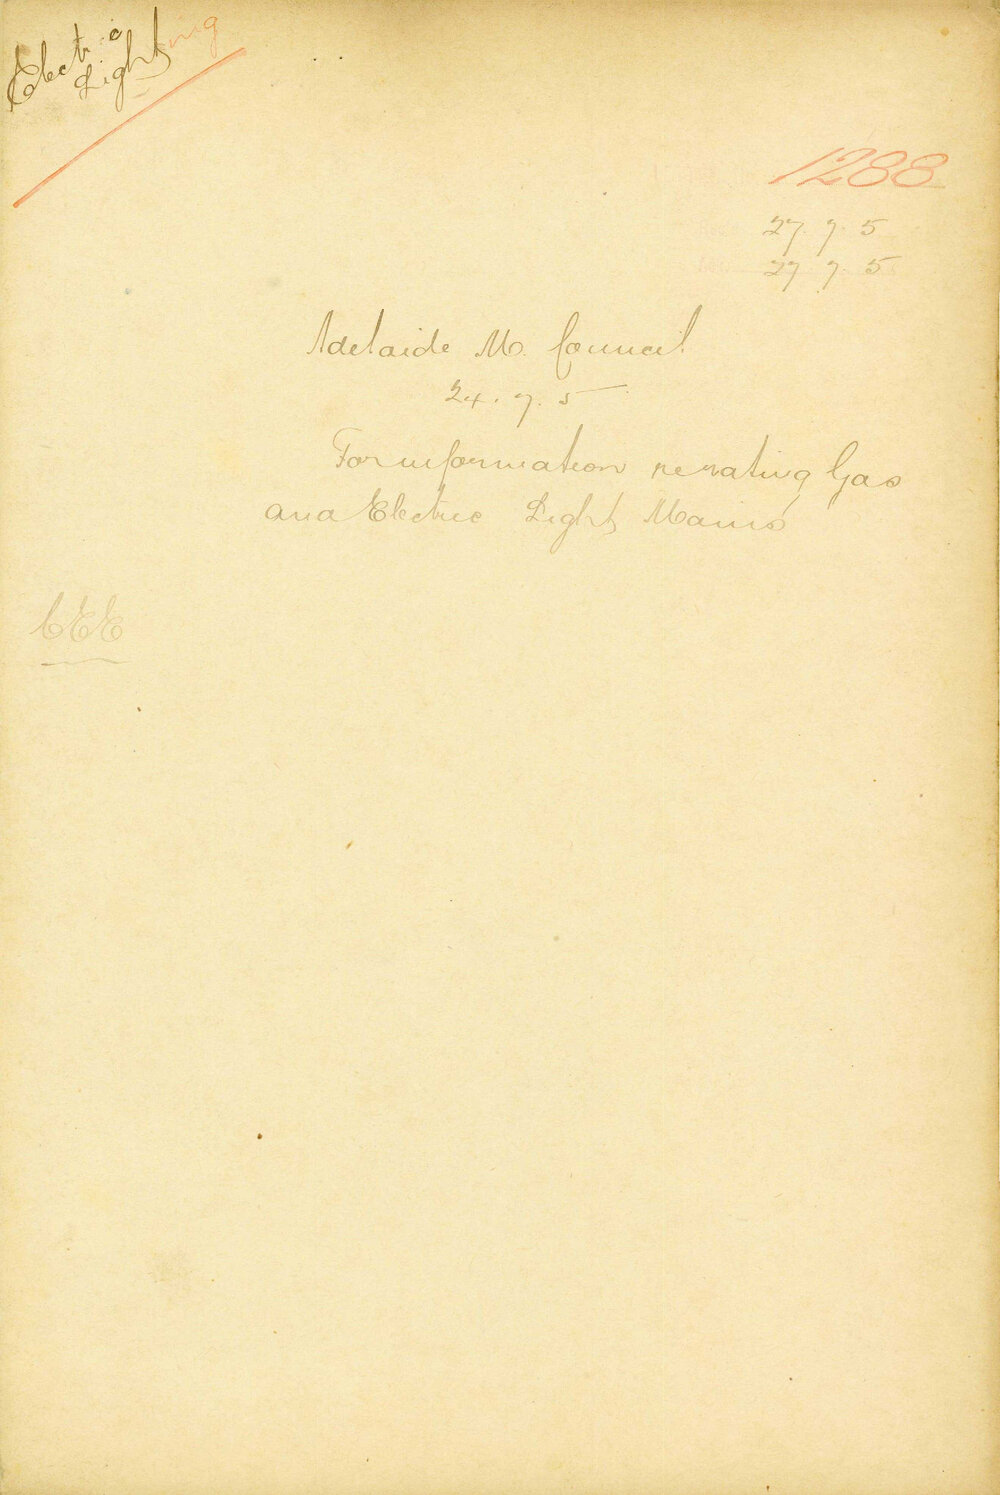 Electric
Lighting
1288
27. 7. 5
27 7. 5
Adelaide M. Council
24. 7. 5
For information re rating Gas
and Electric Light Mains
CEE